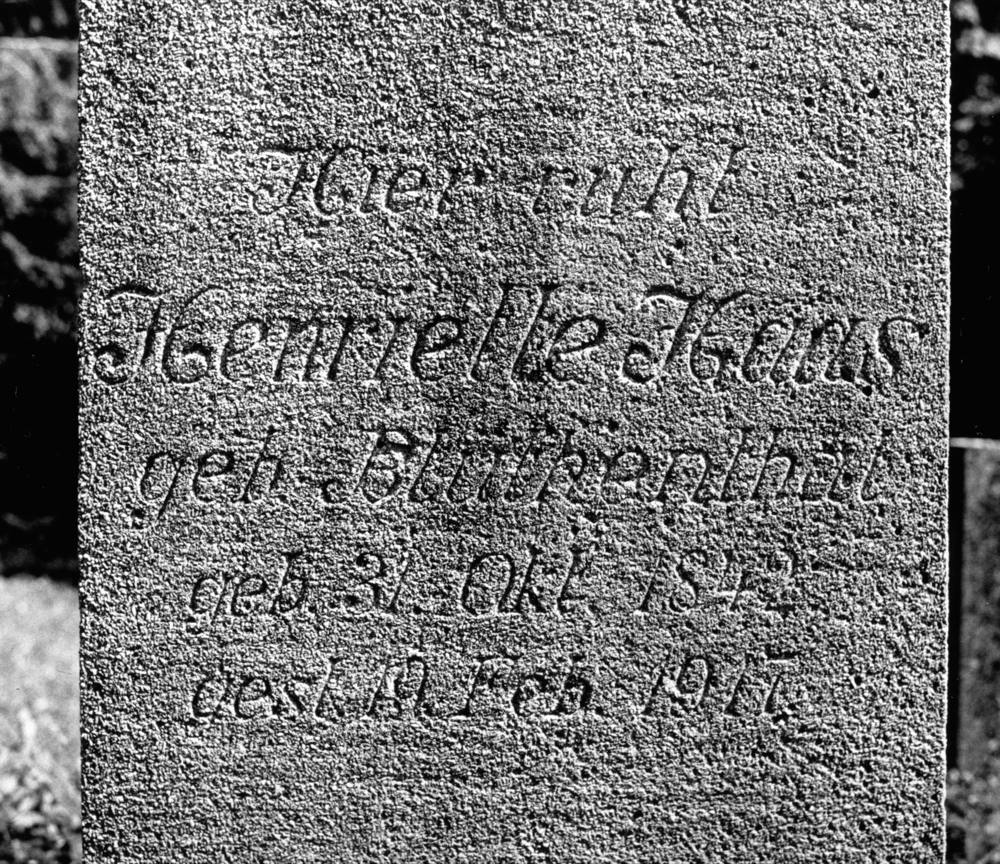 Hier ruht
Henriette Haas
geb. Blüthenthal
geb. 31. Okt. 1842
gest. 19. Feb. 1917.